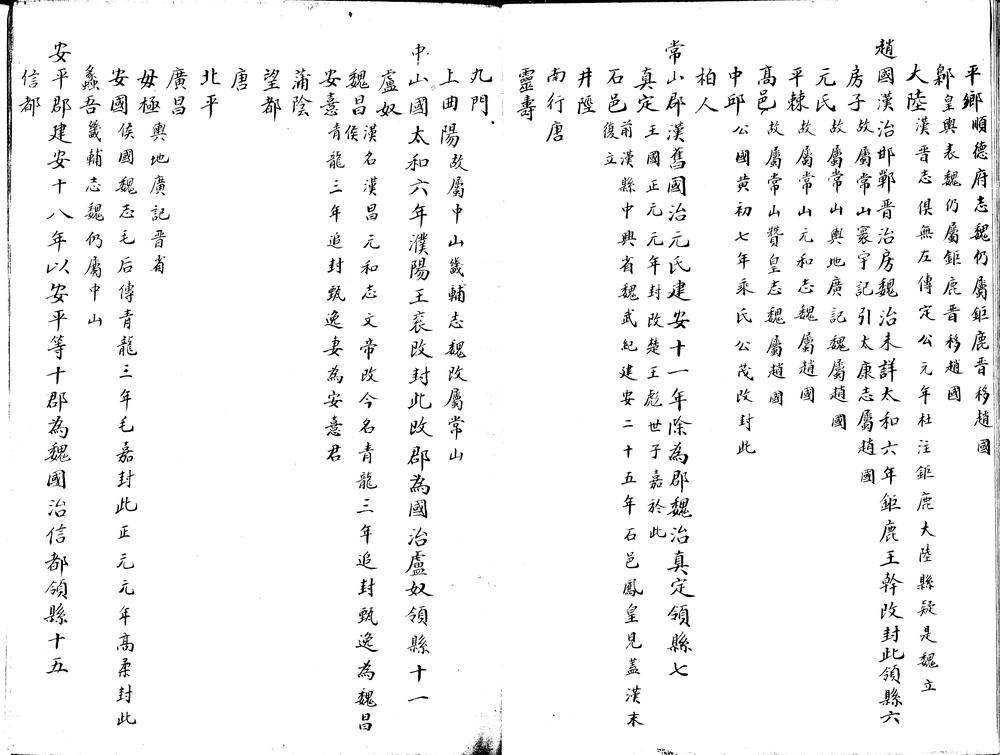 平鄉順德府志魏仍屬鉅鹿晋移趙國
鄡皇輿表魏仍屬鉅鹿晋移趙國
大陸漢晋志俱無左傳定公元年杜注鉅鹿大陸縣疑是魏立
趙國漢治邯鄲晋治房魏治未詳太和六年鉅鹿王幹改封此領縣六
房子故屬常山寰宇記引太康志屬趙國
元氏故屬常山輿地廣記魏屬趙國
平棘故屬常山元和志魏屬趙國
高邑故屬常山贊皇志魏屬趙國
中邱公國黄初七年乘氏公茂改封此
柏人
常山郡漢舊國治元氏建安十一年除為郡魏治真定領縣七
真定王國正元元年封改楚王彪世子嘉於此
石邑前漢縣中興省魏武紀建安二十五年石邑鳳皇見蓋漢末復立
井陘
南行唐
靈壽
九門
上曲陽故屬中山畿輔志魏改屬常山
中山國太和六年濮陽王衮改封此改郡為國治盧奴領縣十一
盧奴
魏昌漢名漢昌元和志文帝改今名青龍三年追封甄逸為魏昌侯
安憙青龍三年追封甄逸妻為安憙君
蒲陰
望都
唐
北平
廣昌
毋極輿地廣記晋省
安國侯國魏志毛后傳青龍三年毛嘉封此正元元年高柔封此
蠡吾畿輔志魏仍屬中山
安平郡建安十八年以安平等十郡為魏國治信都領縣十五
信都